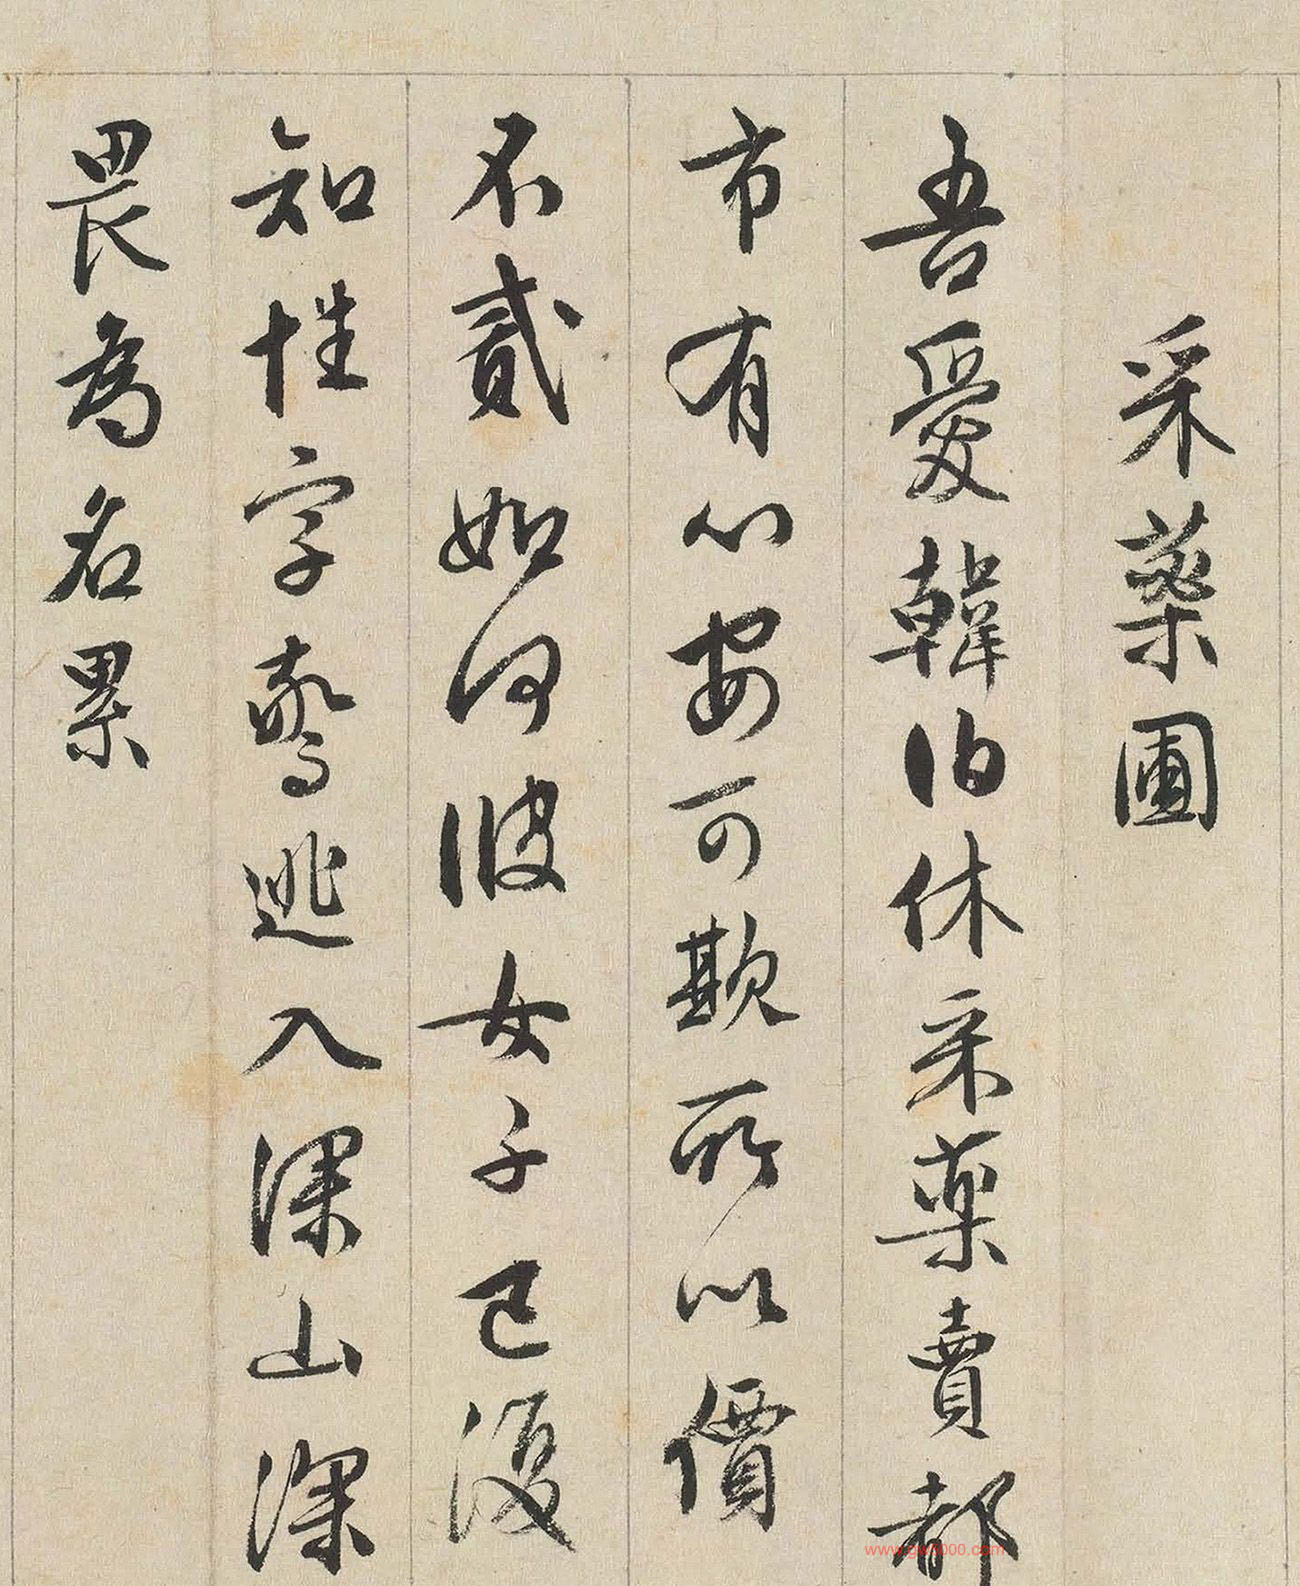 采藥圃
吾愛韓伯休采藥賣都
市有心安可欺所以價
不貳如何彼女子已復
知性字驚逃入深山深
畏為名累
www.gw5000.com